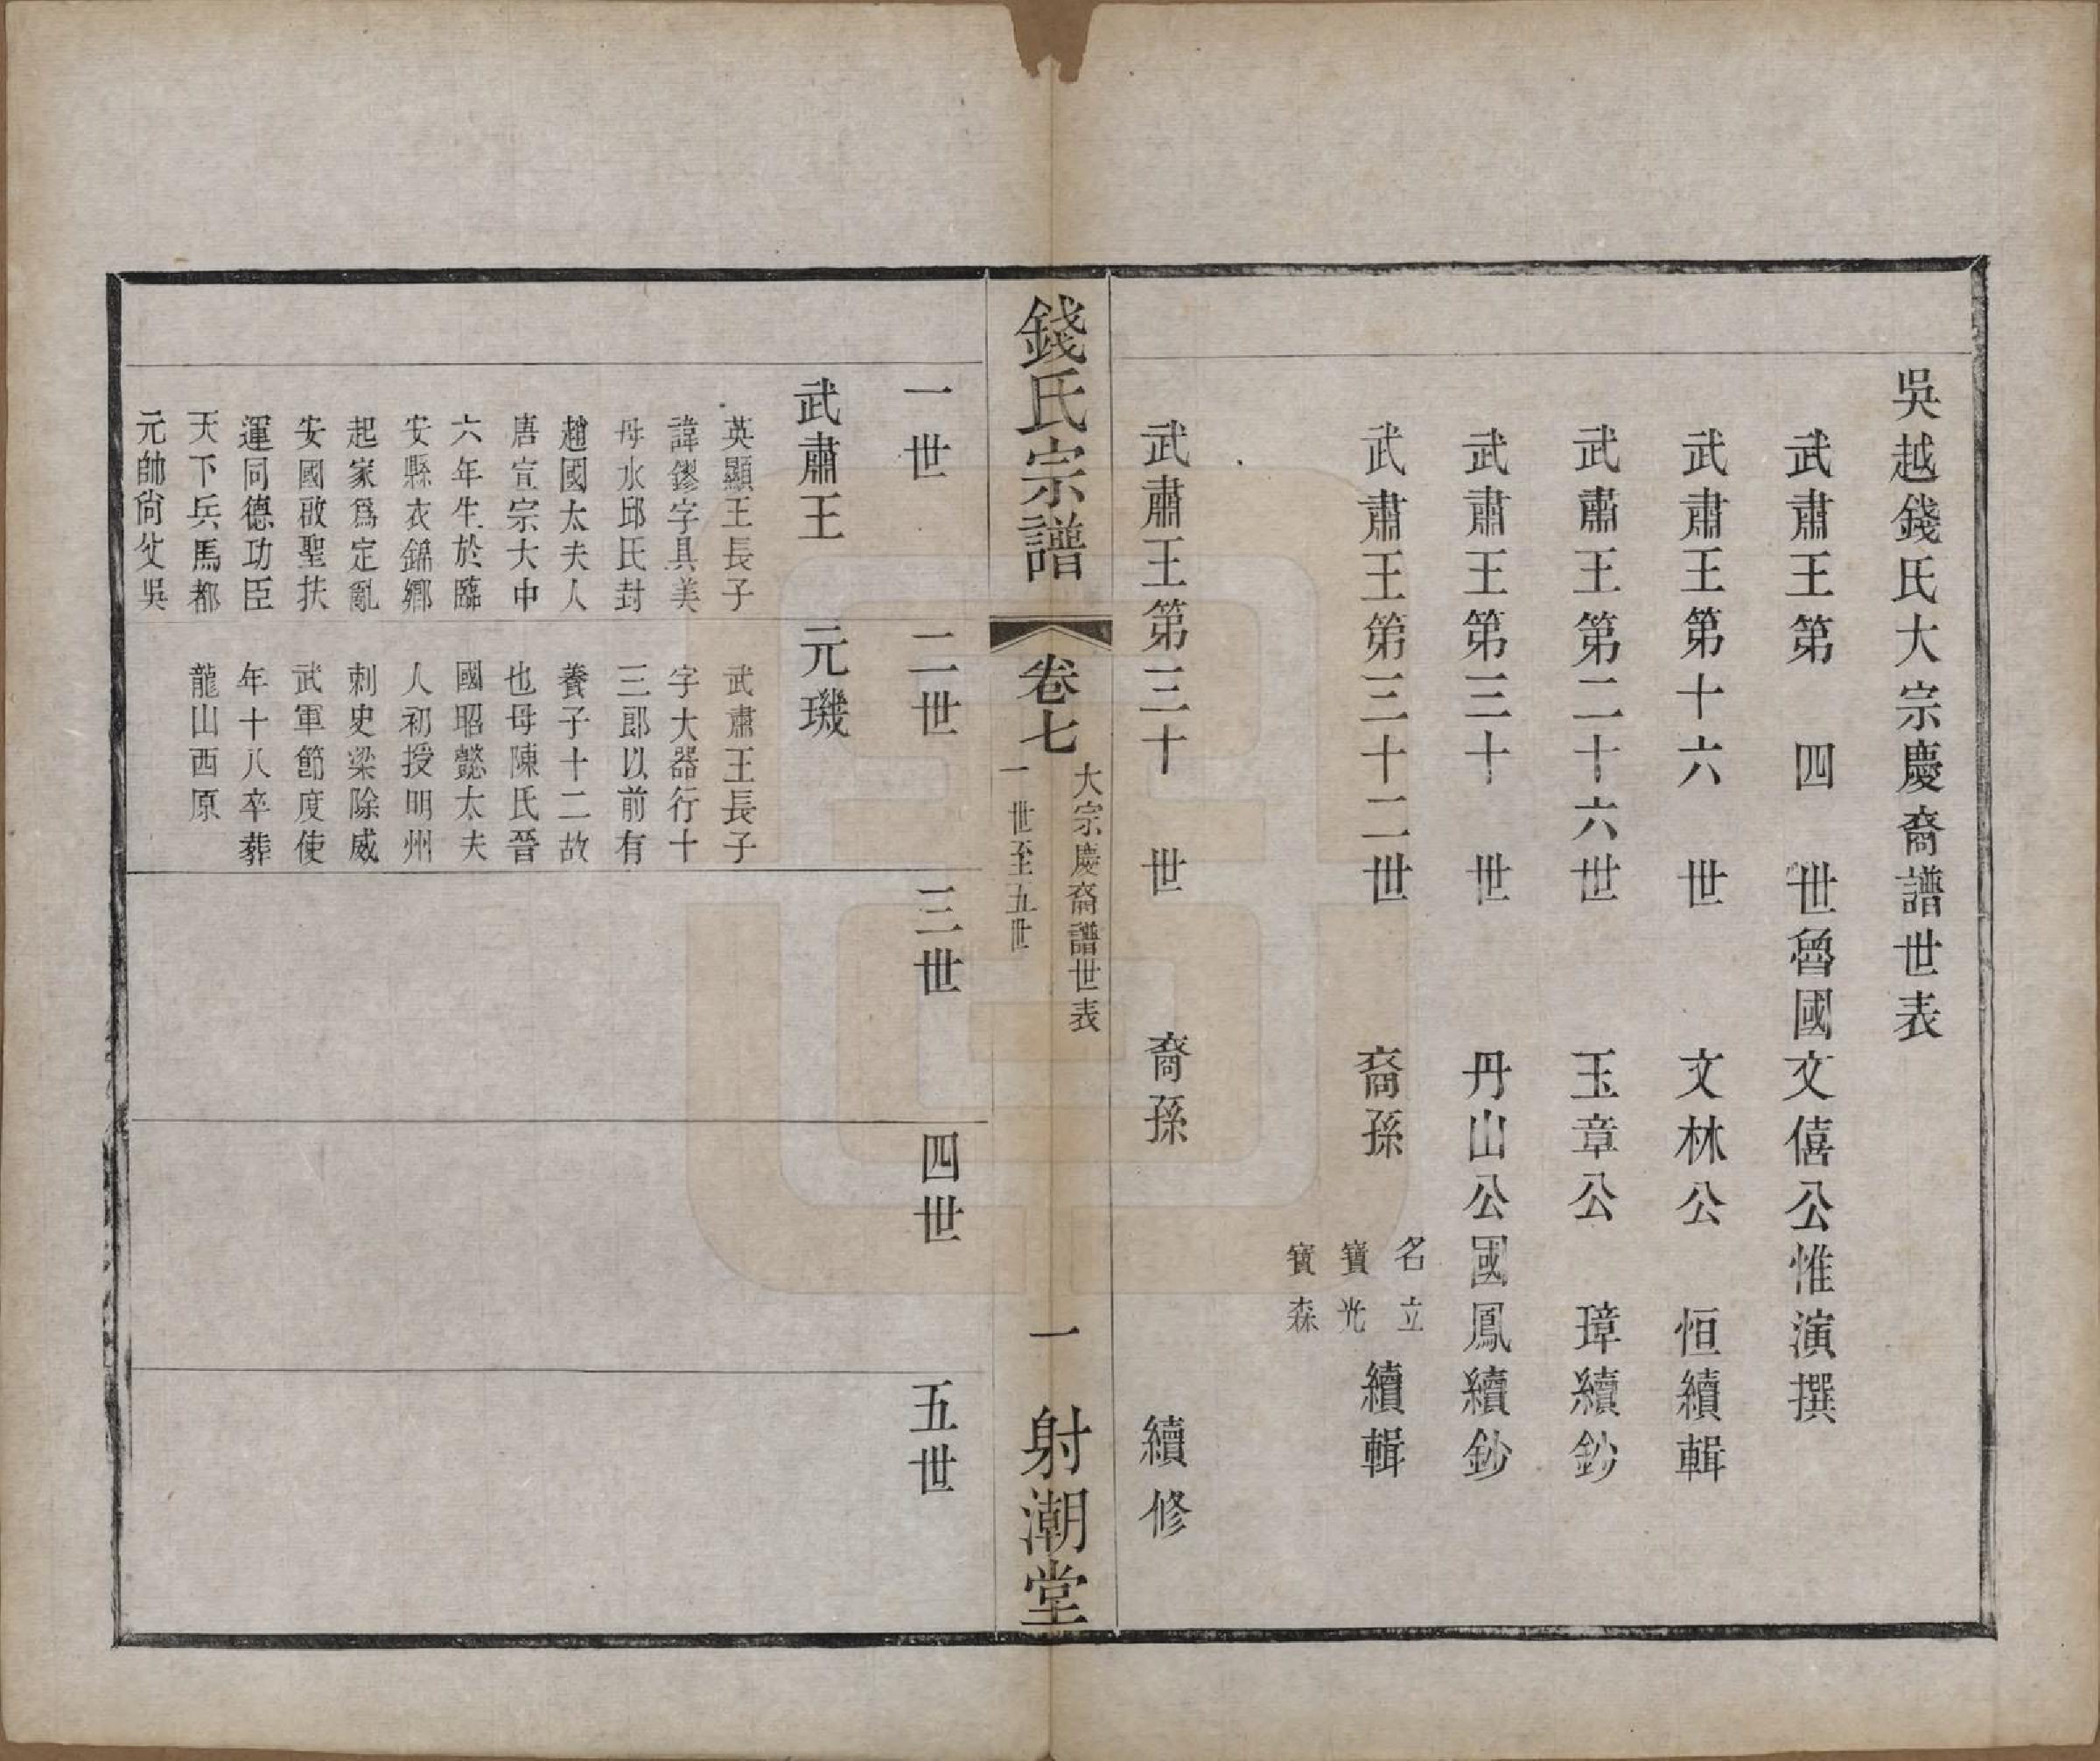 吳越錢氏大宗慶裔譜世表
武肅王第四世魯國文僖公惟演撰
武肅王第十六世文林公恒續輯
武肅王第二十六世玉章公璋續鈔
武肅王第三十世丹山公國鳳續鈔
武肅王第三十二世裔孫
名立
寶光
寶森
續輯
武肅王第三十世裔孫續修
錢氏宗譜
卷七
大宗慶裔譜世表
一世至五世
一
射潮堂
一世
武肅王
英顯王長子
諱鏐字具美
母水邱氏封
趙國太夫人
唐宣宗大中
六年生於臨
安縣衣錦鄉
起家爲定亂
安國啟聖扶
運同德功臣
天下兵馬都
元帥尙父吳
二世
元璣
武肅王長子
字大器行十
三郎以前有
養子十二故
也母陳氏晉
國昭懿太夫
人初授明州
刺史梁除威
武軍節度使
年十八卒葬
龍山西原
三世
四世
五世